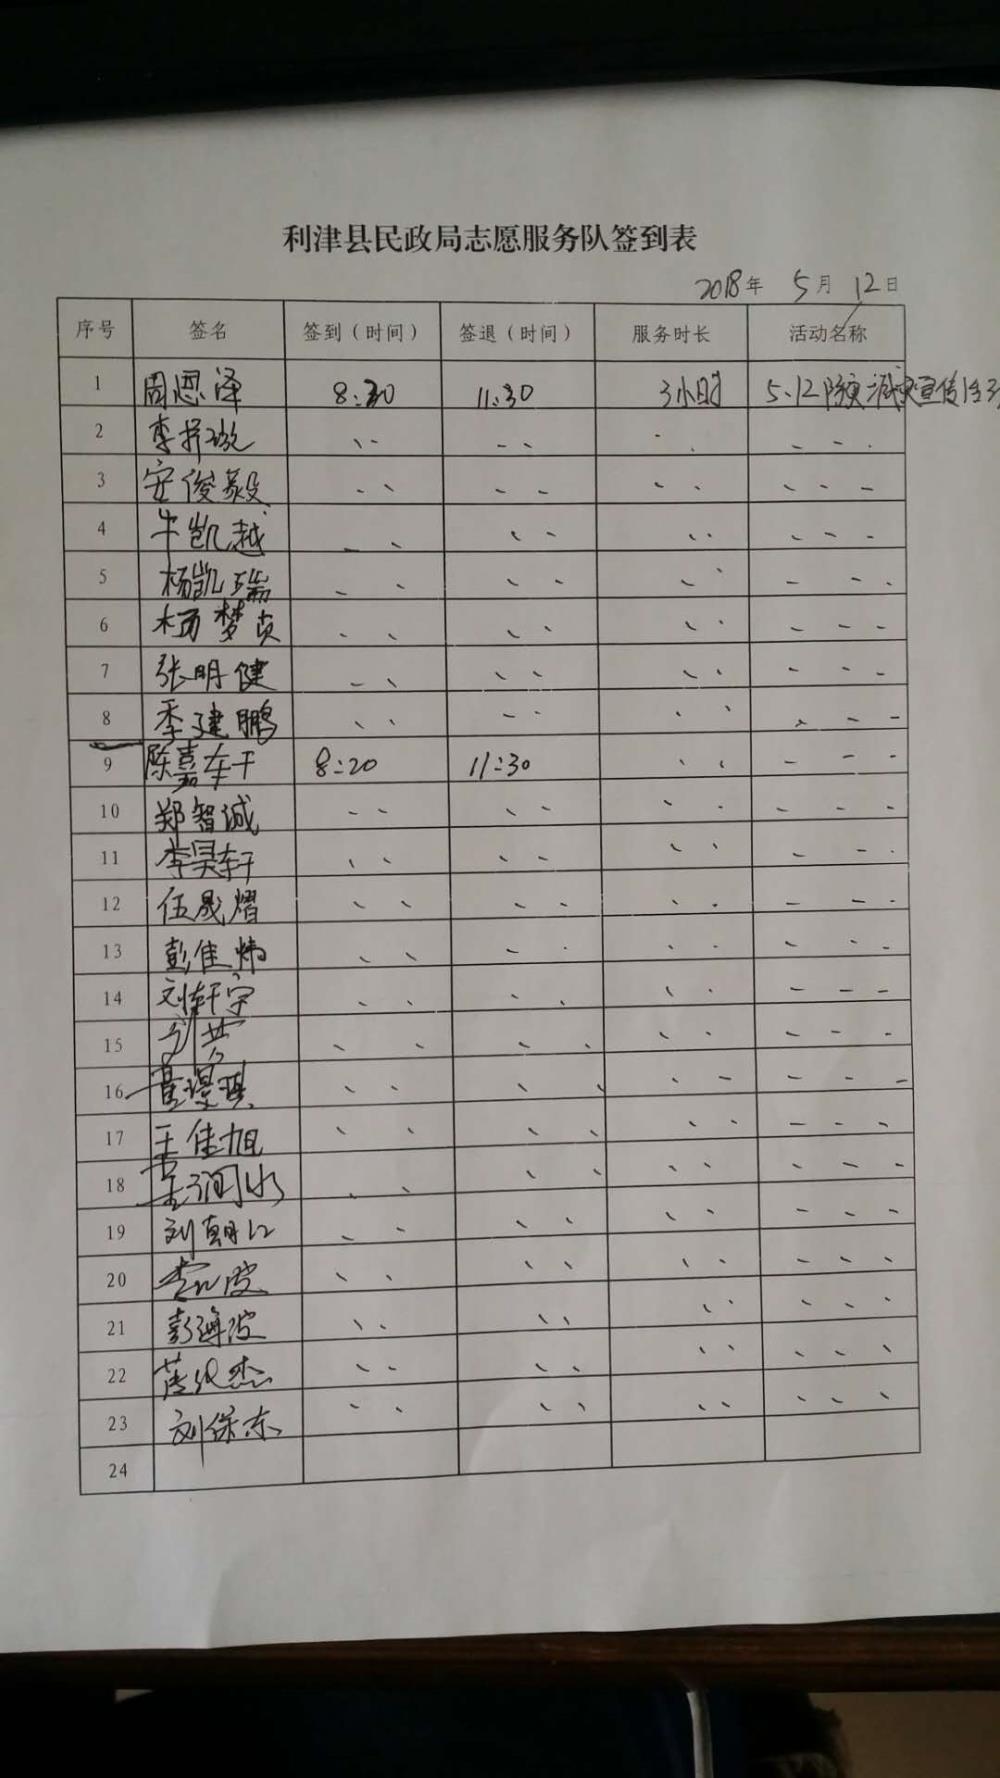 利津县民政局志愿服务队签到表
2018年 5月 12日
序号 签名 签到（时间） 签退（时间） 服务时长 活动名称
1 周恩泽 8:30 11:30 3小时 5.12防灾减灾宣传活动
2 李择璇 、、 、、 、、 、、、
3 安俊毅 、、 、、 、、 、、、
4 牛凯越 、、 、、 、、 、、、
5 杨凯瑞 、、 、、 、、 、、、
6 杨梦贞 、、 、、 、、 、、、
7 张明健 、、 、、 、、 、、、
8 季建鹏 、、 、、 、、 、、、
9 陈嘉轩 8:20 11:30 、、 、、、
10 郑智诚 、、 、、 、、 、、、
11 李昊轩 、、 、、 、、 、、、
12 伍晟熠 、、 、、 、、 、、、
13 彭佳炜 、、 、、 、、 、、、
14 刘轩宇 、、 、、 、、 、、、
15 、、 、、 、、 、、、
16 、、 、、 、、 、、、
17 王佳旭 、、 、、 、、 、、、
18 、、 、、 、、 、、、
19 刘朝江 、、 、、 、、 、、、
20 、、 、、 、、 、、、
21 彭海波 、、 、、 、、 、、、
22 、、 、、 、、 、、、
23 刘保东 、、 、、 、、 、、、
24